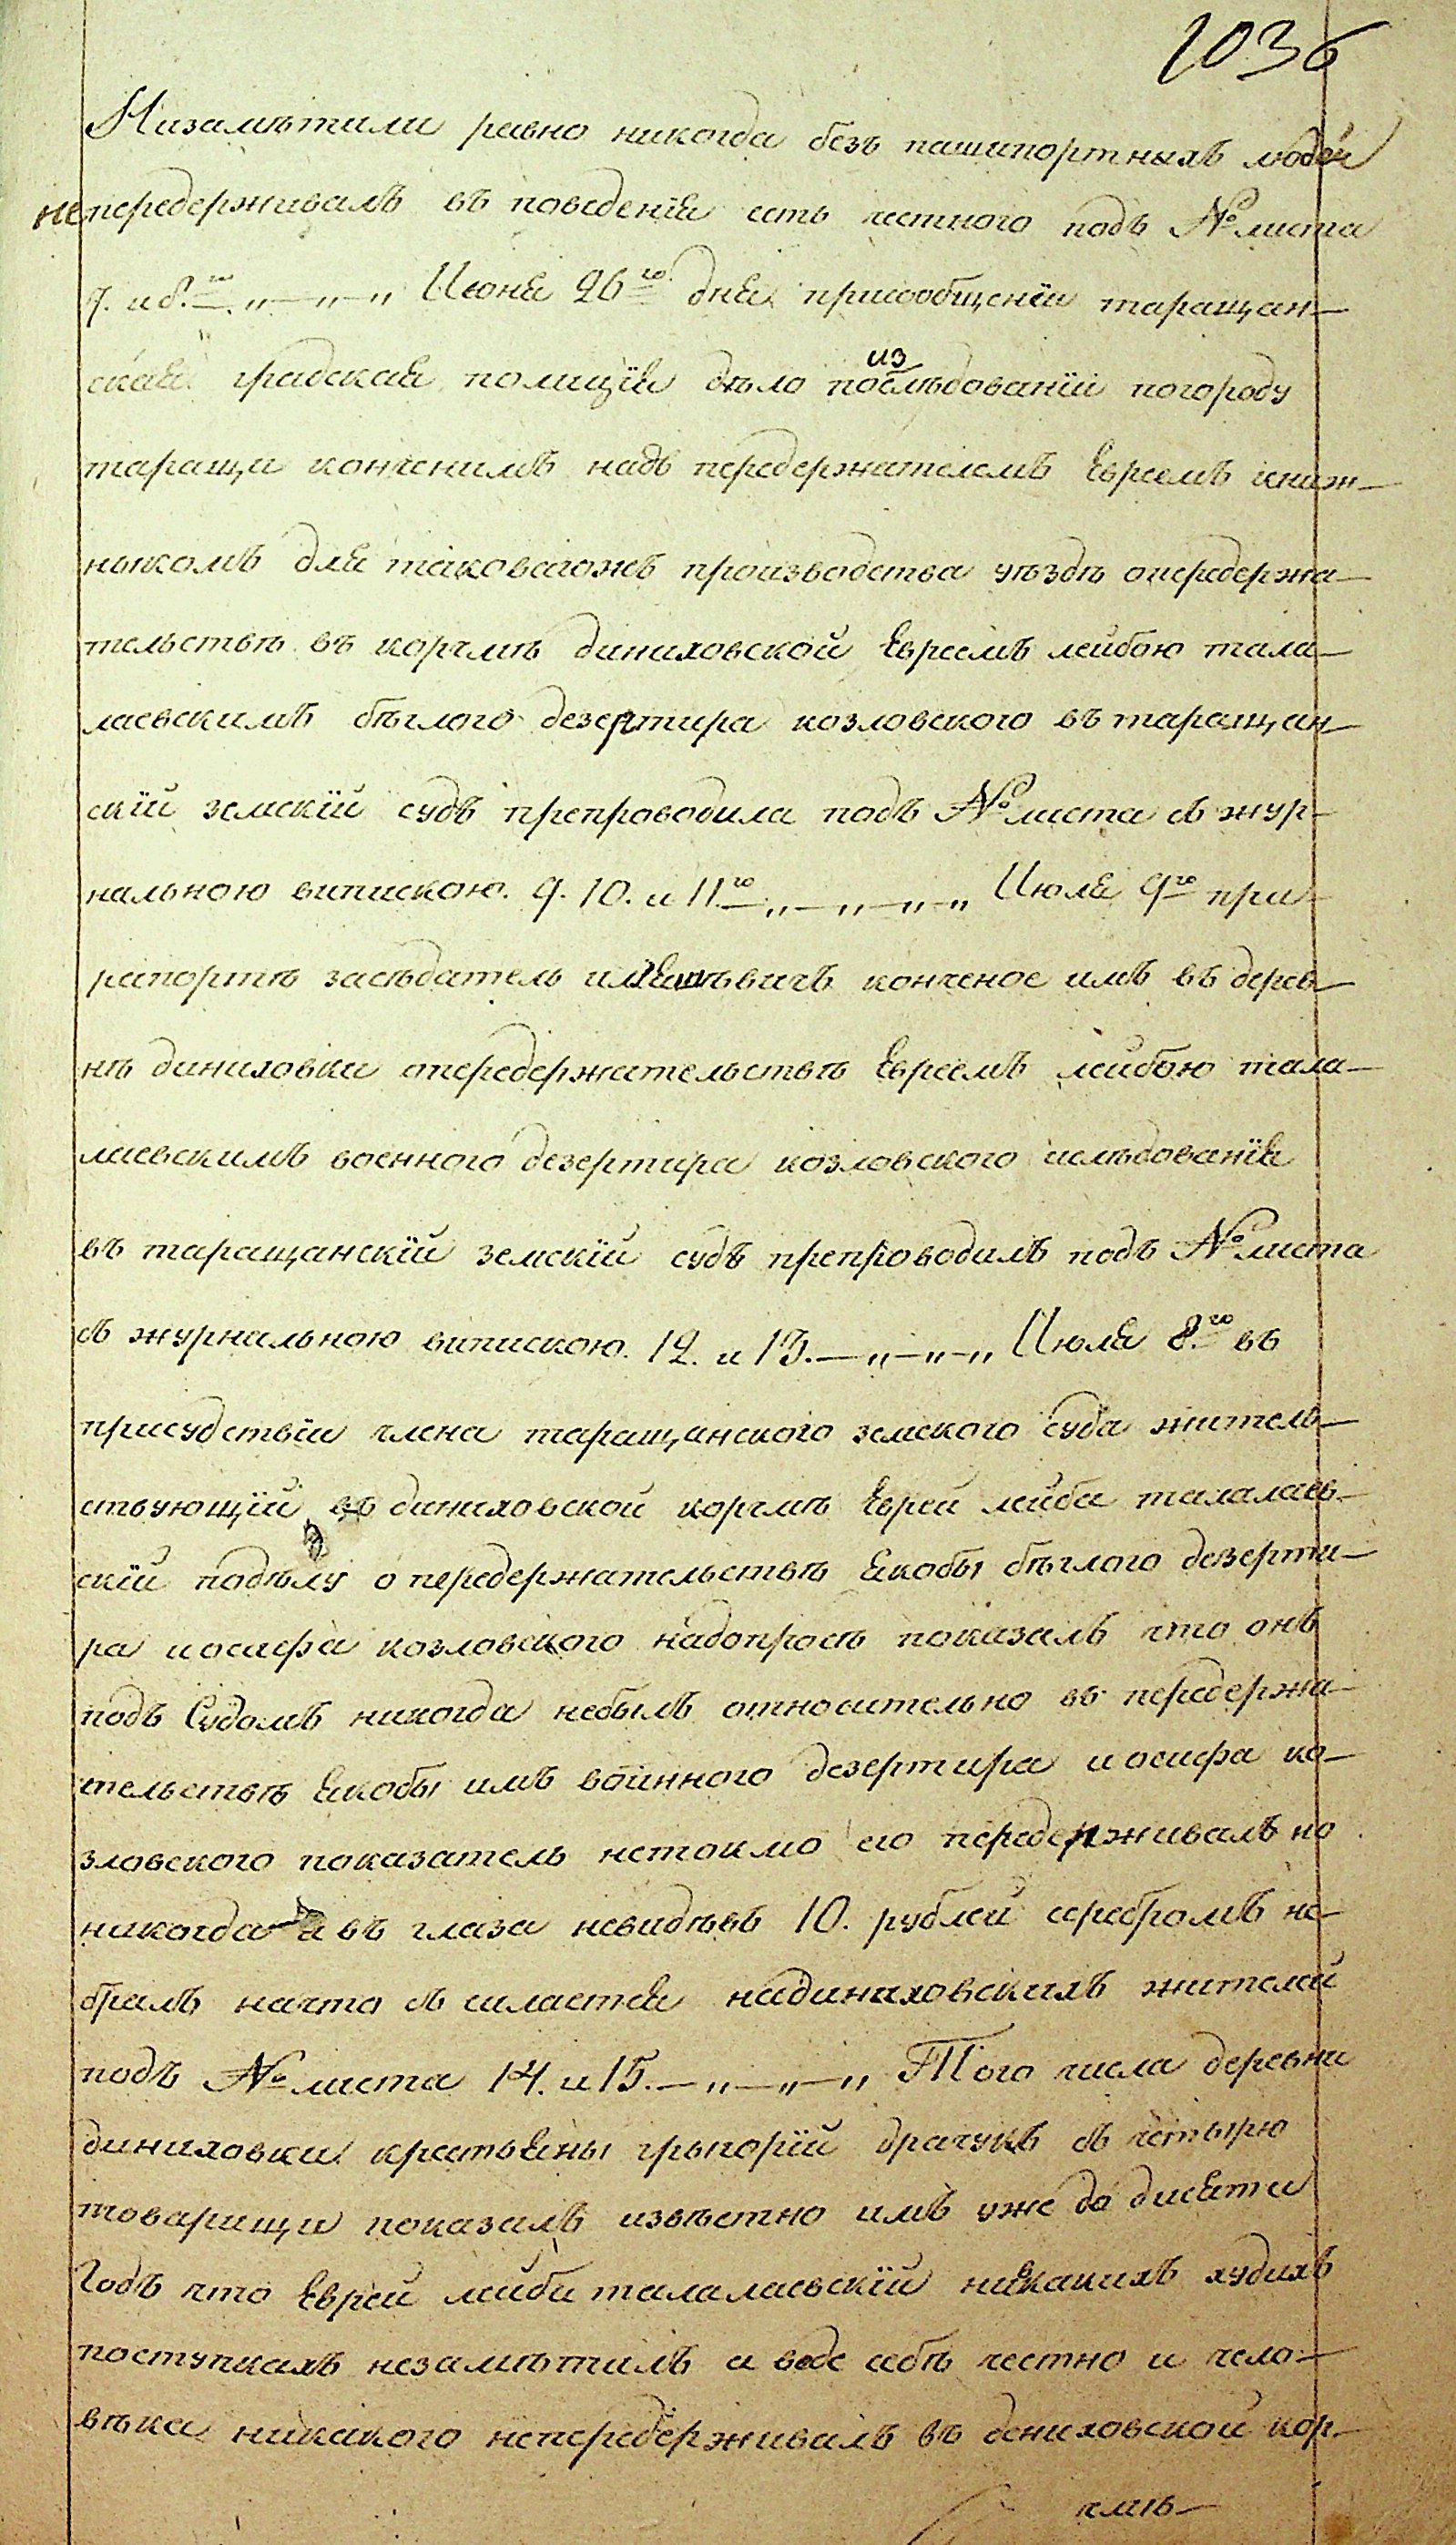 1036
Низамѣтили равно никогда безъ пашпортныхъ людей
непередерживалъ въ поведенія есть честного подъ № листа
7. и 8.го „ — „ — „ Июня 26го дня присообщеніи таращан—
ская градская полиція дѣло по изслѣдованіи погороду
таращи конченимъ надъ передержателемъ Евреемъ книж—
ныкомъ для таковагожъ производства уѣздѣ опередержа—
тельствѣ въ корчмѣ диниховской Евреемъ лейбою тала—
лаевскимъ бѣглого дезертира козловского въ таращан—
скій земскій судъ препроводила подъ № листа съ жур—
нальною випискою. 9. 10. и 11.го — „ — „ — „ — „ Июля 9го при
рапортѣ засѣдатель конченое имъ въ дерев—
нѣ диниховки опередержательствѣ Евреемъ лейбою тала—
лаевскимъ военного дезертира козловского ислѣдованія
въ таращанскій земскій судъ препроводилъ подъ № листа
съ журнальною випискою. 12. и 13. — „ — „ — „ Июля 8.го въ
присудствіи члена таращанского земского суда житель—
ствующій въ диниховской корчмѣ Еврей лейба талалаев—
скій подѣлу о передержательствѣ якобы бѣглого дезерти—
ра иосифа козловского надопросъ показалъ что онъ
подъ Судомъ никогда небылъ относительно въ передержа—
тельствѣ якобы имъ воинного дезертира иосифа ко—
зловского показатель нетокмо его передерживалъ но
никогда и въ глаза невидѣвъ 10. рублей серебромъ не—
бралъ начто съ силается надиниховскихъ жителей
подъ № листа 14. и 15. — „ — „ — „ Того числа деревни
диниховки крестьяны грыгорій драчукъ съ четырю
товарищи показалъ извѣстно имъ уже до дисяти
Годъ что Еврей лейби талалаевскій ниякакихъ худихъ
поступкахъ незамѣтилъ а веде себѣ честно и чело—
вѣка никакого непередерживалъ въ дениховской кор—
чмѣ—